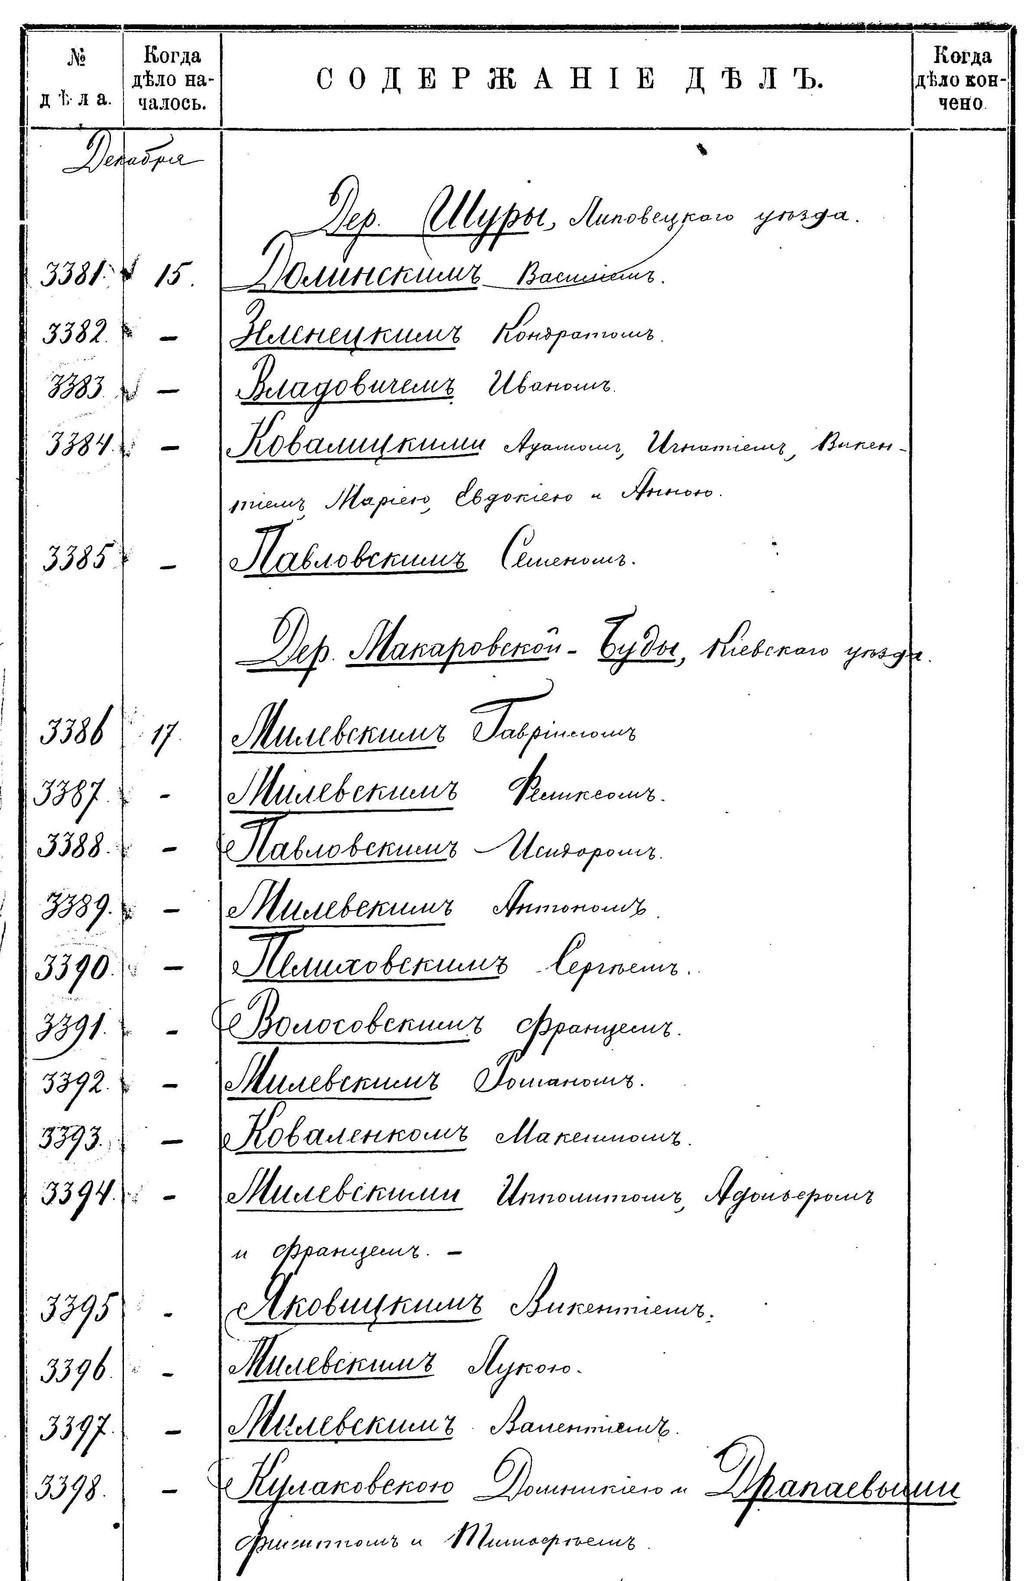 № дѣла.
Когда дѣло началось.
СОДЕРЖАНІЕ ДѢЛЪ.
Когда дѣло кончено.
Декабря
Дер. Щуры, Липовецкаго уѣзда.
3381. 15. Долинскимъ Василіемъ.
3382. – Зеленецкимъ Кондратомъ.
3383. – Владовичемъ Иваномъ.
3384. – Ковалицкими Адамомъ, Игнатіемъ, Викен-
тіемъ, Маріею, Евдокіею и Анною.
3385 – Павловскимъ Семеномъ.
Дер. Макаровской-Буды, Кіевскаго уѣзда.
3386 17. Милевскимъ Гавріиломъ
3387. - Милевскимъ Феликсомъ.
3388. – Павловскимъ Исидоромъ.
3389. – Милевскимъ Антономъ.
3390. – Пелиховскимъ Сергѣемъ.
3391. – Волосовскимъ Францемъ.
3392. – Милевскимъ Романомъ.
3393. – Коваленкомъ Максимомъ.
3394. - Милевскими Ипполитомъ,
и Францемъ. –
3395 - Яковицкимъ Викентіемъ.
3396. – Милевскимъ Лукою.
3397. – Милевскимъ Валентіемъ.
3398. – Кулаковскою Домникіею и Драпаевыми
Филиппомъ и Тимофѣемъ.